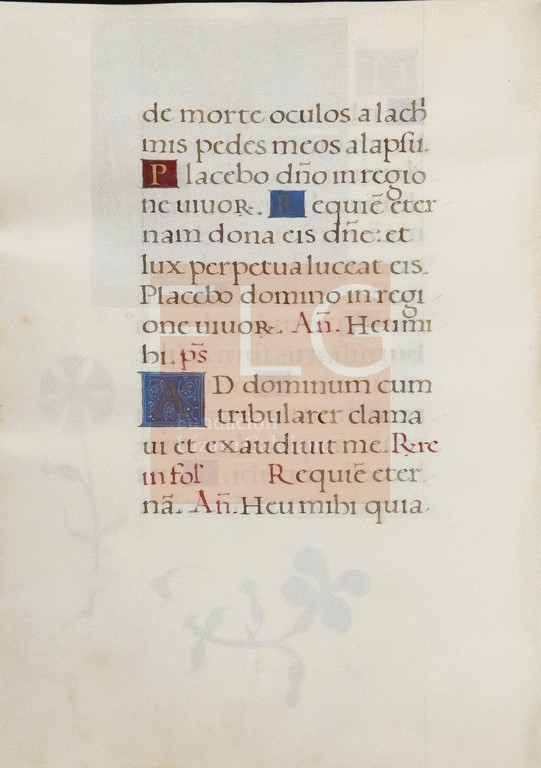 de morte oculos a lach
mis pedes meos a lapsu.
Placebo dño in regio
ne uiuoꝝ. Requiē eter
nam dona eis dñe: et
lux perpetua luceat eis.
Placebo domino in regi
one uiuoꝝ. Añ. Heu mi
hi. ps̄
AD dominum cum
tribularer clama
ui et exaudiuit me. Rere
in fol Requiē eter
nā. Añ. Heu mihi quia.
FLG
Fundación